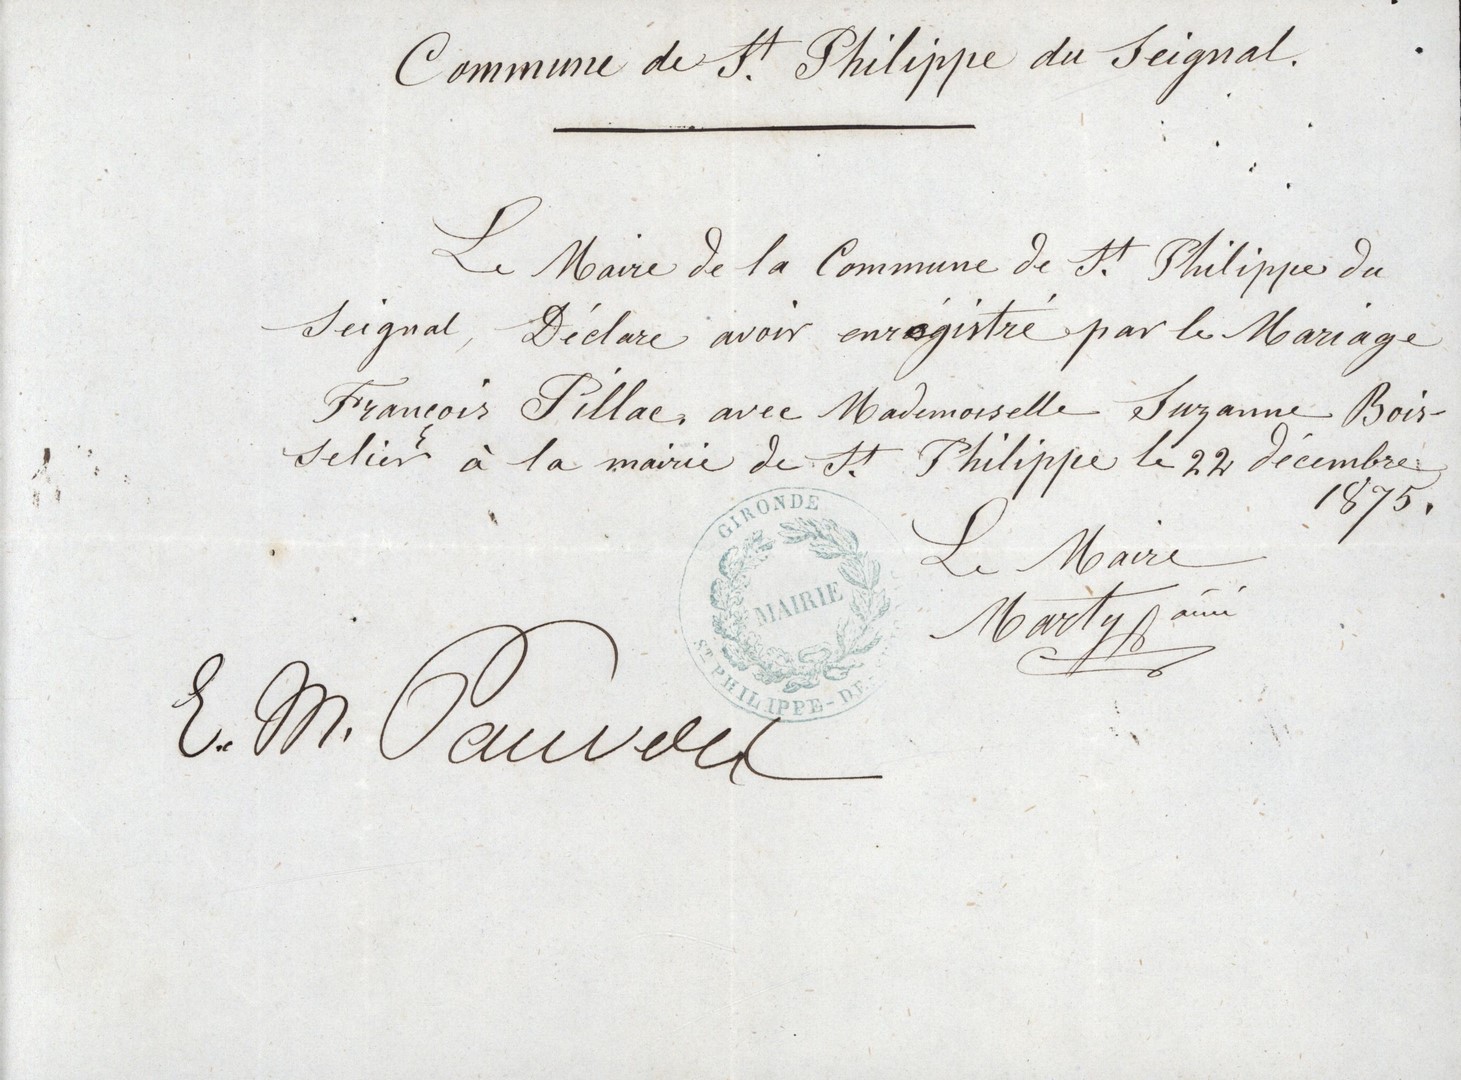 Commune de St. Philippe du Seignal.
Le Maire de la Commune de St. Philippe du
Seignal, Déclare avoir enrégistré par le Mariage
François Pillac, avec Mademoiselle Suzanne Bois-
selier à la mairie de St. Philippe le 22 décembre
1875.
Le Maire
Marty ainé
GIRONDE
MAIRIE
ST PHILIPPE-DE-
E. M.